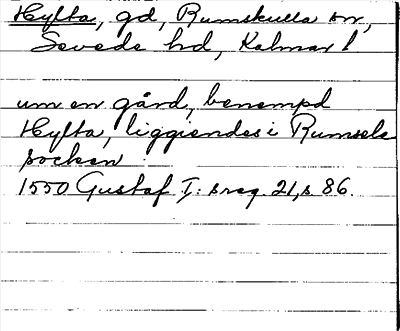 Hylta, gd, Rumskulla sn,
Sevede hd, Kalmar l
um en gård, benempd
Hylta, liggiendes i Rumsele
socken
1550 Gustaf I: s reg. 21, s 86.